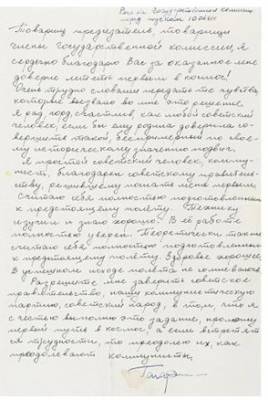 Товарищ председатель, товарищи
члены государственной комиссии, я
сердечно благодарю Вас за оказанное мне
доверие лететь первым в космос!
Очень трудно словами передать те чувства,
которые вызвало во мне это решение.
Я рад, горд, счастлив, как любой советский
человек, если бы ему родина доверила со-
вершить такой, беспримерный по свое-
му историческому значению подвиг.
Я простой советский человек, комму-
нист, благодарен советскому правительст-
ву, решившему послать меня первым.
Считаю себя полностью подготовленным
к предстоящему полёту. Технику
изучил и знаю хорошо. В её работе
полностью уверен. Теоретически также
считаю себя полностью подготовленным
к предстоящему полёту. Здоровье хорошее.
В успешном исходе полёта не сомневаюсь.
Разрешите мне заверить советское
правительство, нашу коммунистическую
партию, советский народ, в том, что я
с честью выполню это задание, проложу
первый путь в космос. А если встретятся
трудности, то преодолею их, как
преодолевают коммунисты.